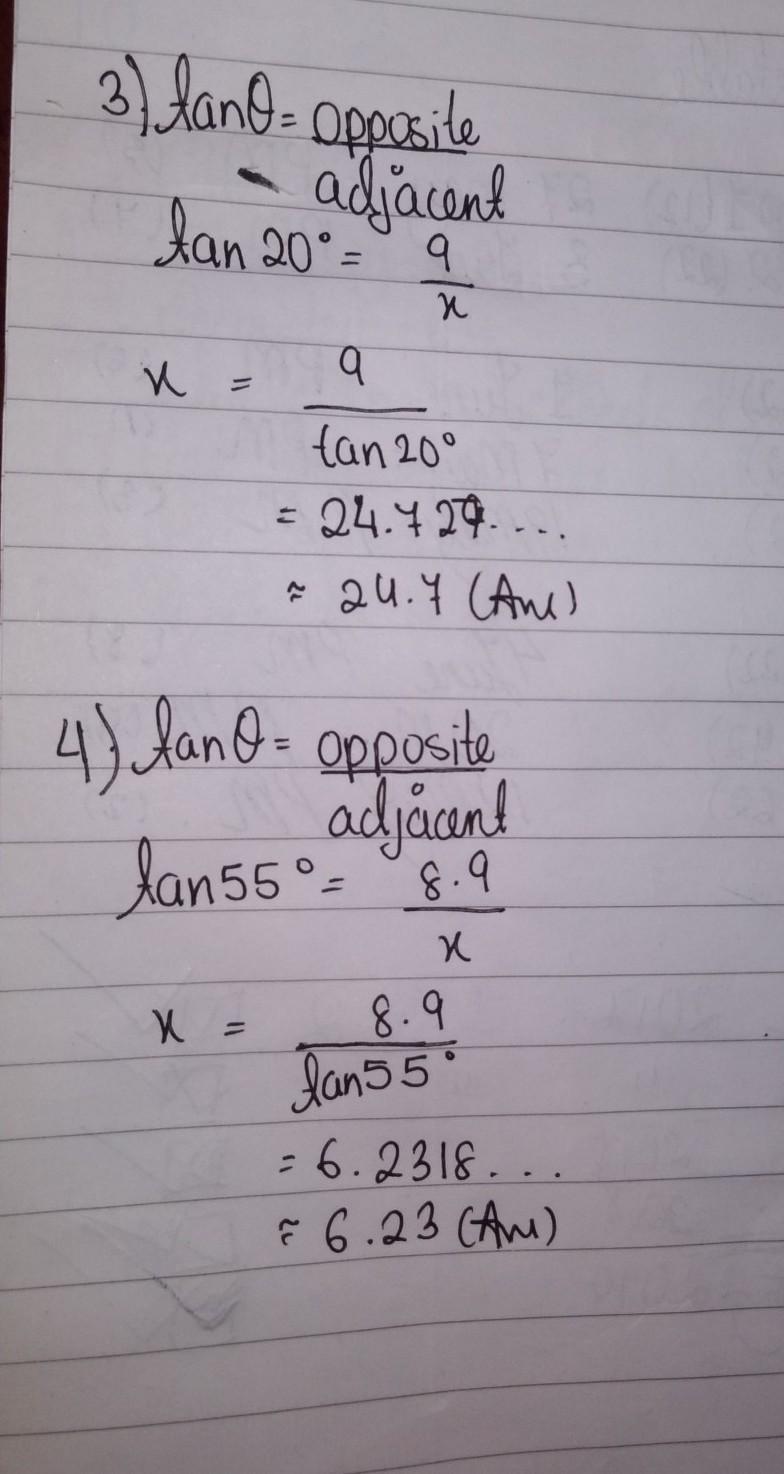 3) tanθ = opposite
adjacent
tan 20° = 9
x
x = 9
tan 20°
= 24.727....
≈ 24.7 (Ans)
4) tanθ = opposite
adjacent
tan 55° = 8.9
x
x = 8.9
tan 55°
= 6.2318...
≈ 6.23 (Ans)